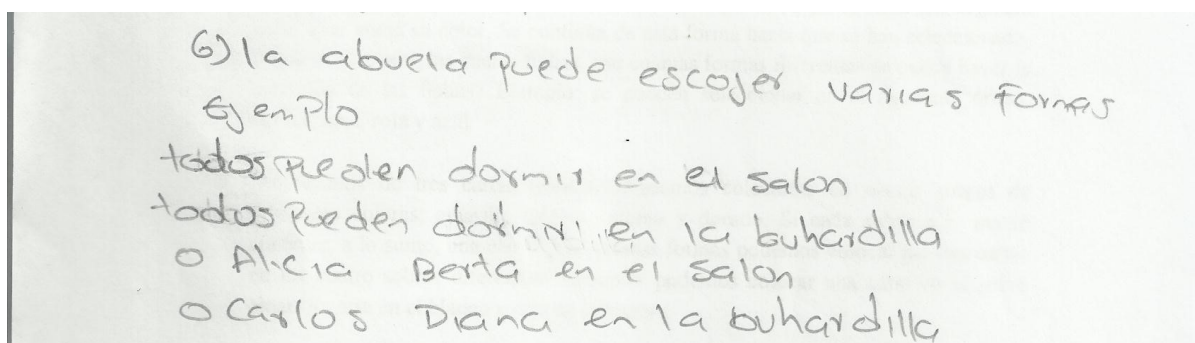 6) la abuela puede escojer varias formas
Ejemplo
todos pueden dormir en el salon
todos pueden dormir en la buhardilla
o Alicia Berta en el salon
o Carlos Diana en la buhardilla